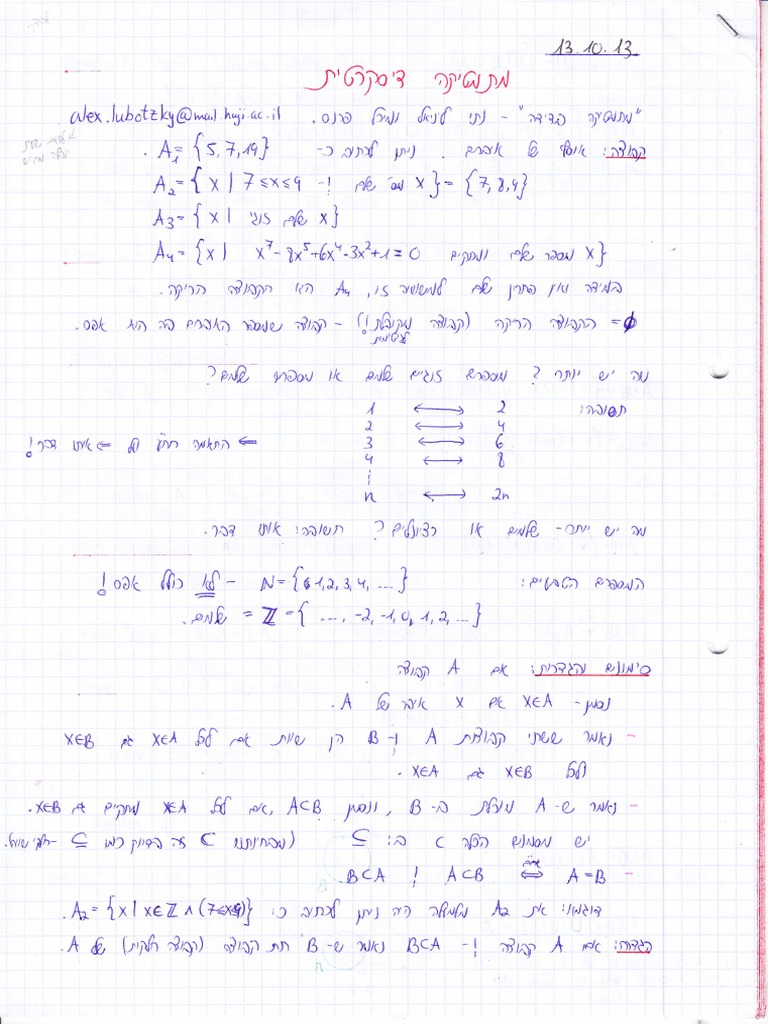 13.10.13
מתמטיקה דיסקרטית
"מתמטיקה בדידה" - נתי לניאל ומיכל פרנס. alex.lubotzky@mail.huji.ac.il
קבוצה: אוסף של איברים. ניתן לכתוב כ- A₁={5,7,19}.
A₂={x | 7≤x≤9 ו- מס' שלם x}={7,8,9}
A₃={x | שלם זוגי x}
A₄={x | x⁷-8x⁵+6x⁴-3x²+1=0 מספר שלם ומקיים x}
במידה ואין פתרון שלם למשוואה זו, A₄ היא הקבוצה הריקה.
∅ = הקבוצה הריקה (קבוצה !) - קבוצה שמספר האברים בה הוא אפס.
מה יש יותר? מספרים זוגיים שלמים או מספרים שלמים?
תשובה: 1 ↔ 2
2 ↔ 4
3 ↔ 6 ⇐ התאמה חח"ע ועל ⇐ אותו דבר!
4 ↔ 8
⋮
n ↔ 2n
מה יש יותר - שלמים או רציונלים? תשובה: אותו דבר.
המספרים הטבעיים: N={1,2,3,4,...} - לא כולל אפס!
ℤ={...,-2,-1,0,1,2,...} = שלמים.
סימונים והגדרות: אם A קבוצה
נסמן - x∈A אם x איבר של A.
- נאמר ששתי קבוצות A ו-B הן שוות אם לכל x∈A גם x∈B
ולכל x∈B גם x∈A.
- נאמר ש-A מוכלת ב-B, ונסמן A⊂B, אם לכל x∈A מתקיים גם x∈B.
יש מסמנים הכלה ⊂ ב: ⊆ (מבחינתנו ⊂ זה בדיוק כמו ⊆ -
- A=B ⇔ A⊂B ו B⊂A.
דוגמא: את A₂ מלמעלה היה ניתן לכתוב כ: A₂={x | x∈ℤ ∧ (7≤x≤9)}.
הגדרה: אם A קבוצה ו- B⊂A נאמר ש-B תת קבוצה (קבוצה חלקית) של A